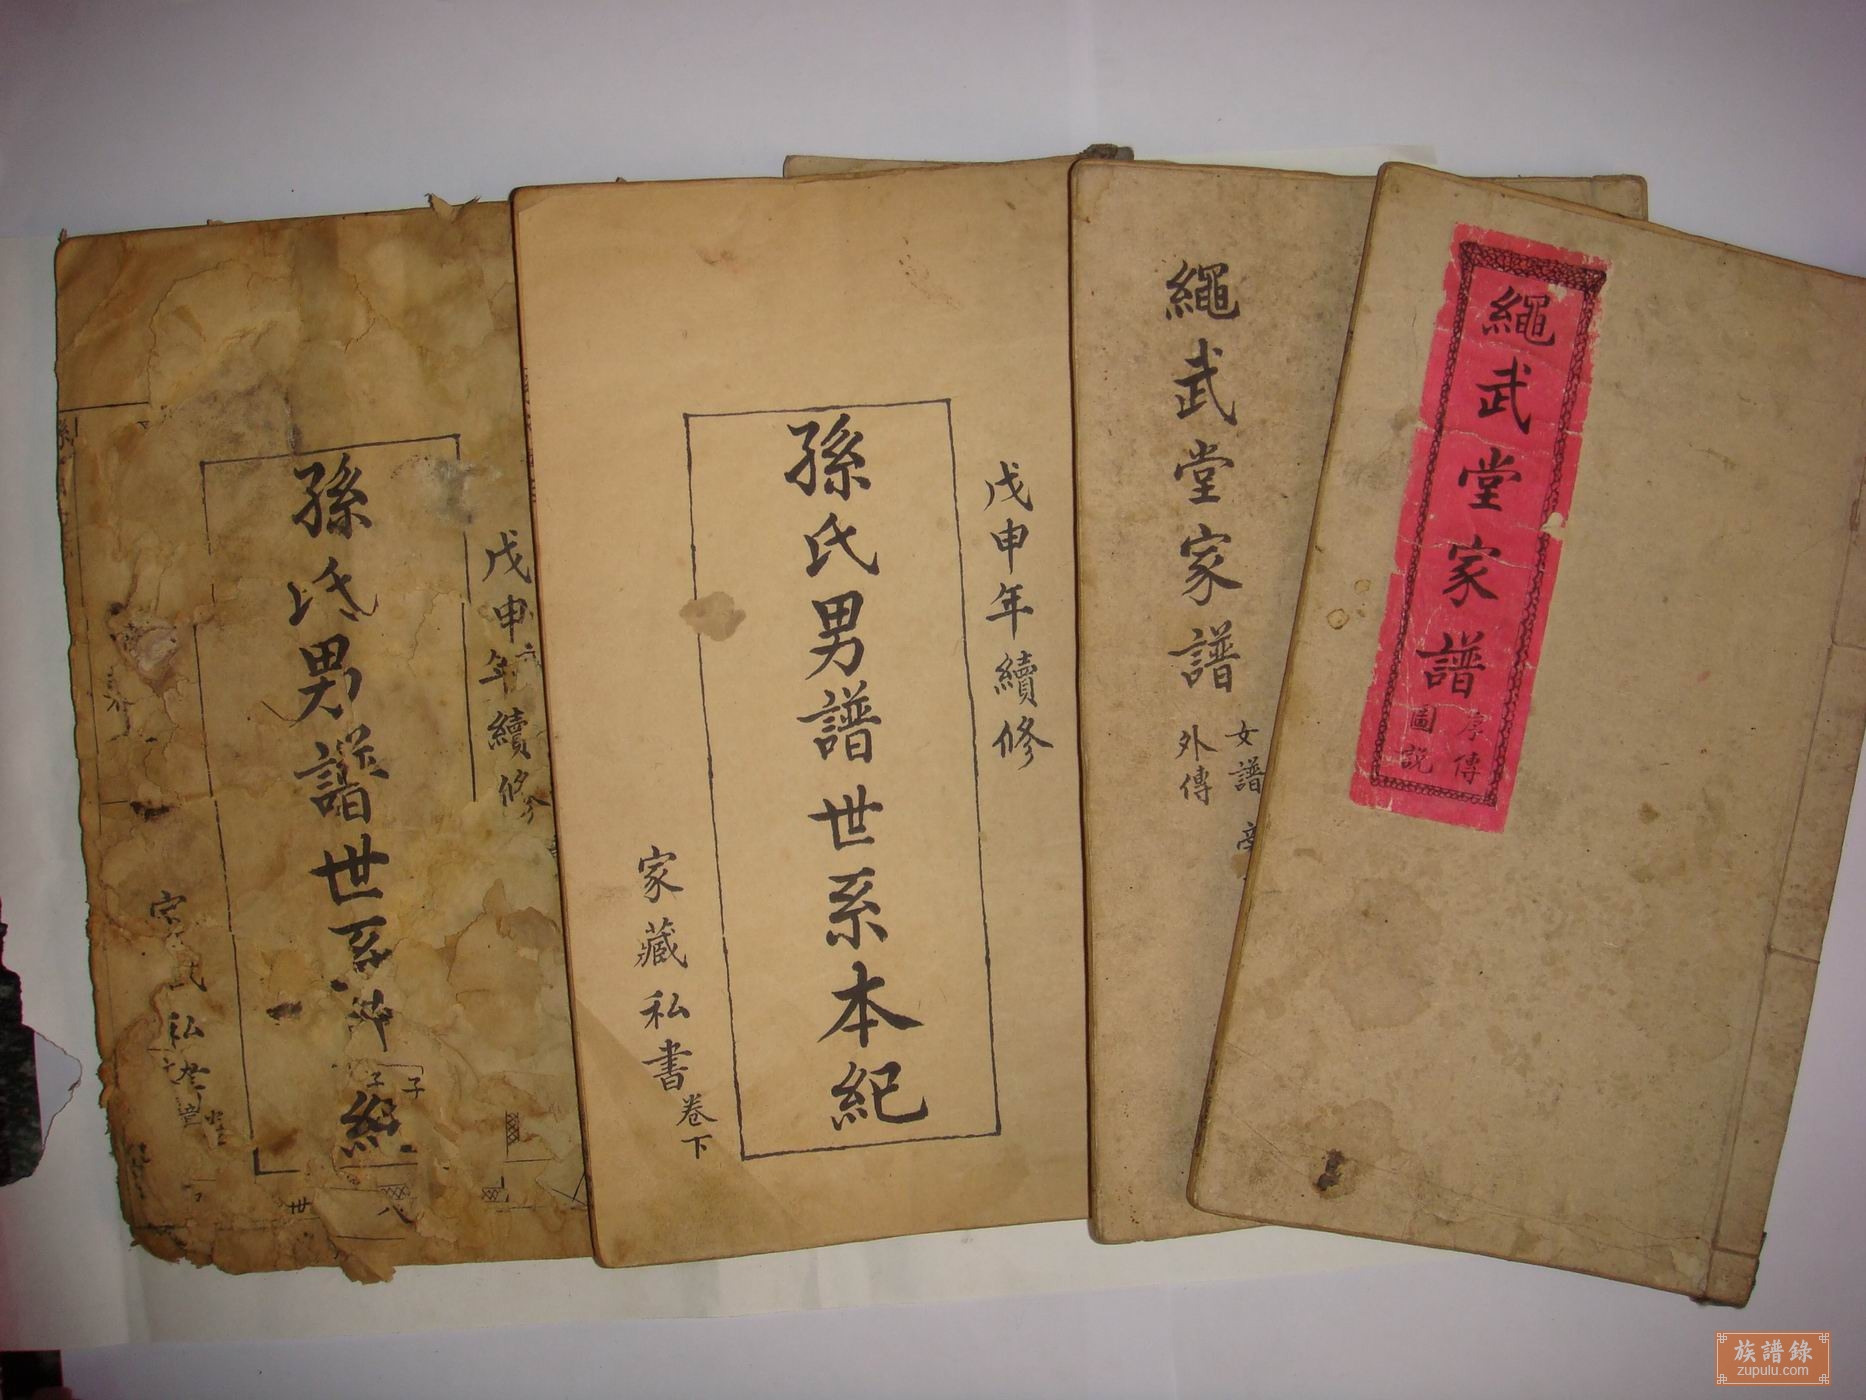 繩武堂家譜
序傳
圖説
繩武堂家譜
女譜
外傳
戊申年續修
孫氏男譜世系本紀
家藏私書
卷下
戊申年續修
孫氏男譜世系
紀
私
世
八
子
子
族譜錄
zupulu.com